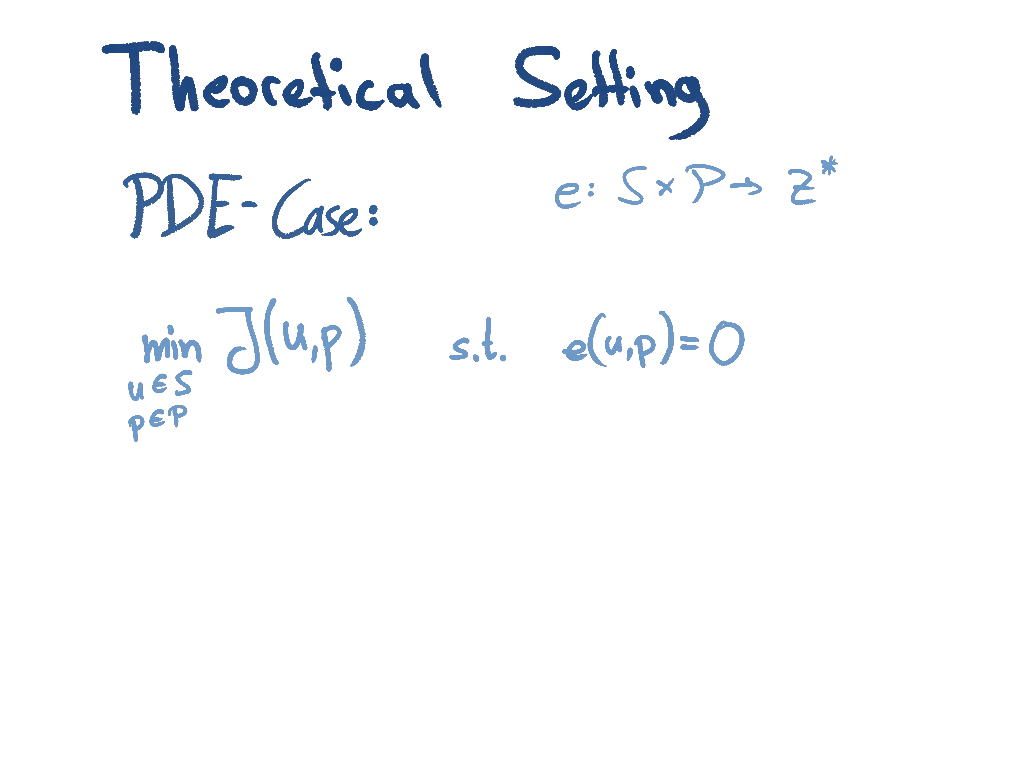 Theoretical Setting
PDE-Case: e: S × P → Z*
min J(u,p) s.t. e(u,p)=0
u∈S
p∈P